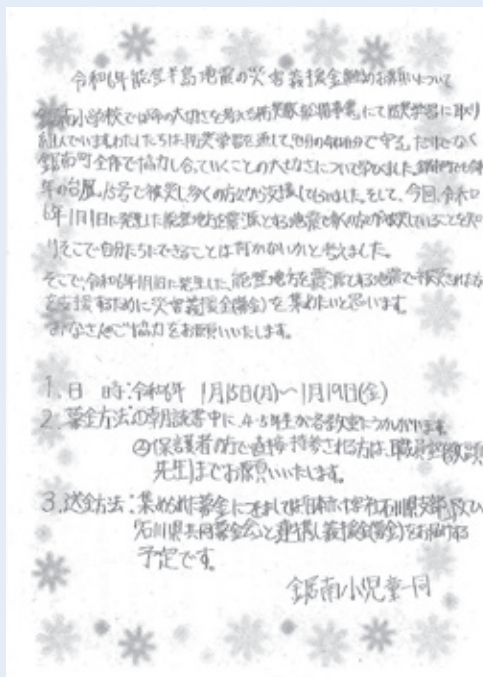 令和6年能登半島地震の災害義援金集めのお願いについて
鋸南小学校では命の大切さを考える防災 事業にて防災学習に取り
組んでいます。わたしたちは防災学習を通して、自分の命は自分で守る。だけでなく
鋸南町全体で協力し合っていくことの大切さについて学びました。鋸南町でも令和
年の台風15号で被災し多くの方々から支援してもらいました。そして、今回、令和
6年1月1日に発生した能登地方を震源とする地震で多くの方が被災していることを知
りそこで自分たちにできることは何かないかと考えました。
そこで、令和6年1月1日に発生した、能登地方を震源とする地震で被災された方
を支援するために災害義援金(募金)を集めたいと思います。
みなさんのご協力をお願いいたします。
1. 日 時:令和6年 1月15日(月)~1月19日(金)
2. 募金方法:①朝読書中に、4・5年生が各教室にうかがいます。
②保護者の方で直接持参される方は、職員室(教頭
先生)までお願いいたします。
3. 送金方法:集められた募金につきましては日本赤十字社石川県支部、及び
石川県共同募金会と連携し義援金(募金)をお届けする
予定です。
鋸南小児童一同